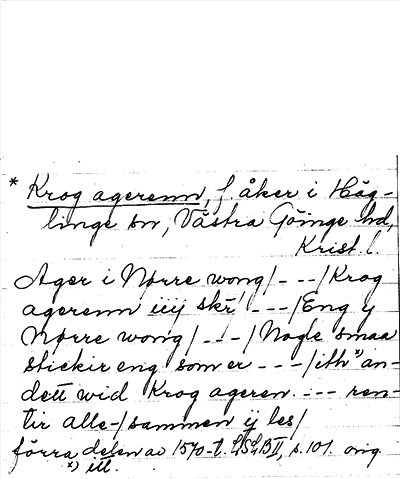 * Krog agerenn, f. åker i Häg-
linge sn, Västra Göinge hd,
Krist. l.
Ager i Nørre wong/---/Krog
agerenn iiij skr! ---/Eng y
Nørre wong/---/Nogle smaa
stickir eng som er ---/ith ˣ⁾an-
dett wid Krog ageren --- ren-
tir alle-/sammen ij les/
förra delen av 1570-t. LSLB II, s. 101. orig
ˣ⁾ itt.